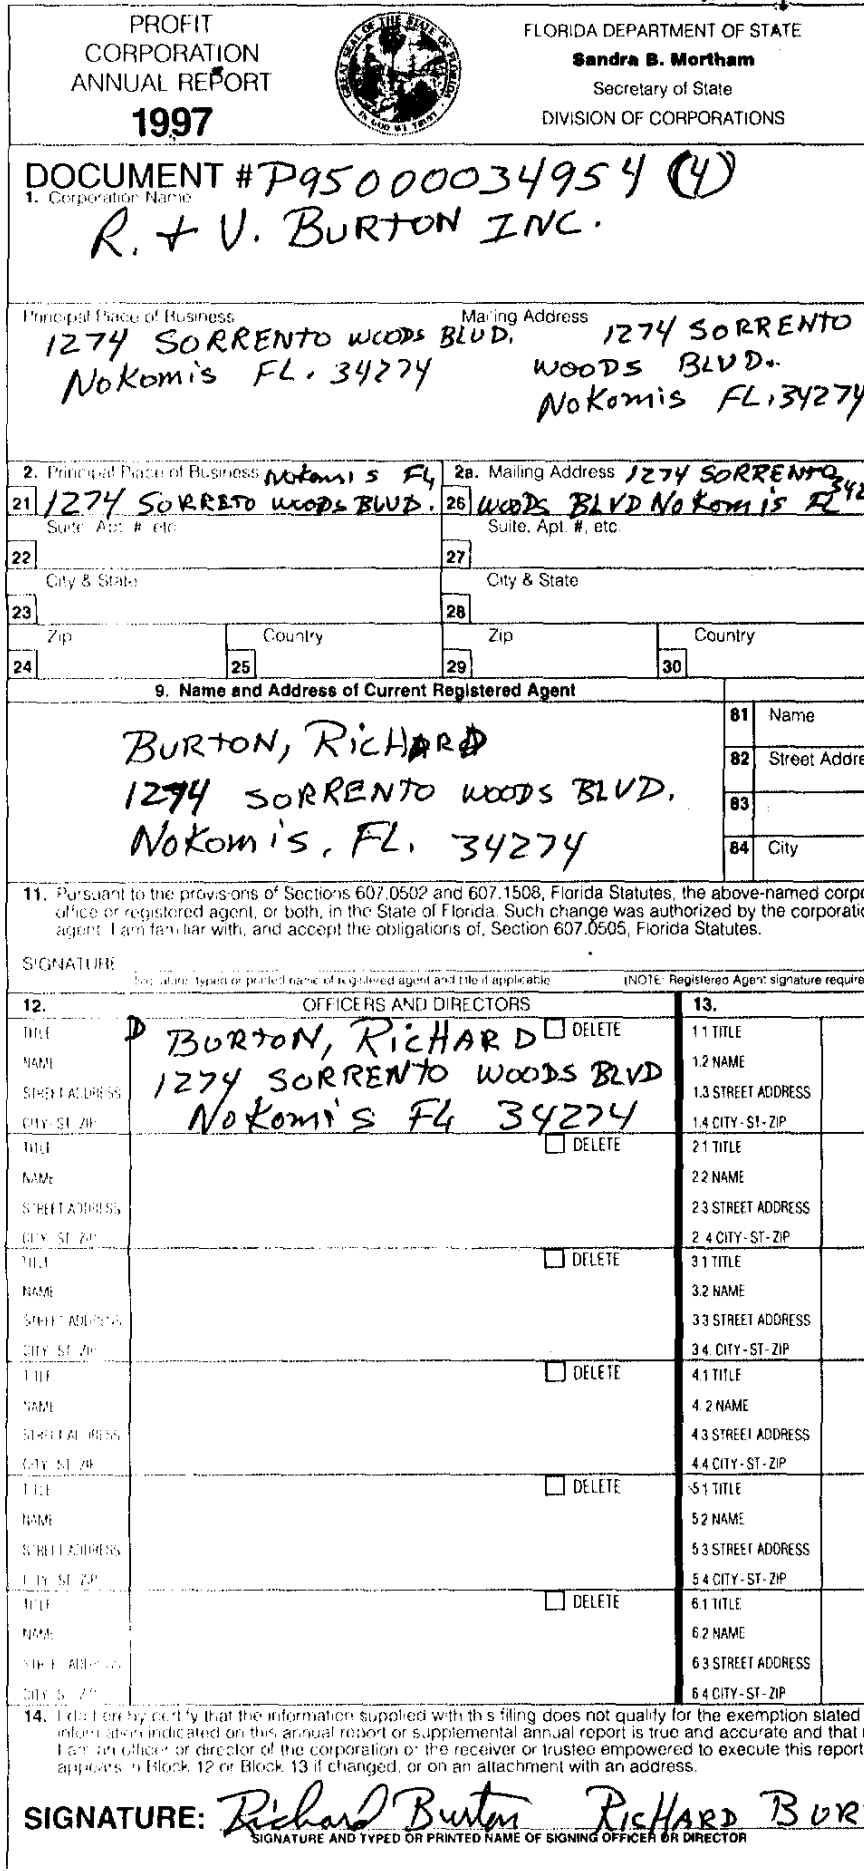 PROFIT
CORPORATION
ANNUAL REPORT
1997
GREAT SEAL OF THE STATE OF FLORIDA
IN GOD WE TRUST
FLORIDA DEPARTMENT OF STATE
Sandra B. Mortham
Secretary of State
DIVISION OF CORPORATIONS
DOCUMENT # P95000034954 (4)
1. Corporation Name
R. + V. BURTON INC.
Principal Place of Business
1274 SORRENTO WOODS BLVD.
NOKOMIS FL. 34274
Mailing Address
1274 SORRENTO
WOODS BLVD.
NOKOMIS FL. 34274
2. Principal Place of Business NOKOMIS FL
21 1274 SORRETO WOODS BLVD.
2a. Mailing Address 1274 SORRENTO
26 WOODS BLVD NOKOMIS FL 342
Suite, Apt. #, etc.
22
Suite, Apt. #, etc.
27
City & State
23
City & State
28
Zip
24
Country
25
Zip
29
Country
30
9. Name and Address of Current Registered Agent
BURTON, RICHARD
1274 SORRENTO WOODS BLVD.
NOKOMIS, FL. 34274
81 Name
82 Street Addre
83
84 City
11. Pursuant to the provisions of Sections 607.0502 and 607.1508, Florida Statutes, the above-named corpo
office or registered agent, or both, in the State of Florida. Such change was authorized by the corporatio
agent. I am familiar with, and accept the obligations of, Section 607.0505, Florida Statutes.
SIGNATURE
Signature, typed or printed name of registered agent and title if applicable (NOTE: Registered Agent signature require
12. OFFICERS AND DIRECTORS
13.
TITLE D DELETE
NAME BURTON, RICHARD
STREET ADDRESS 1274 SORRENTO WOODS BLVD
CITY-ST-ZIP NOKOMIS FL 34274
1.1 TITLE
1.2 NAME
1.3 STREET ADDRESS
1.4 CITY-ST-ZIP
TITLE DELETE
NAME
STREET ADDRESS
CITY-ST-ZIP
2.1 TITLE
2.2 NAME
2.3 STREET ADDRESS
2.4 CITY-ST-ZIP
TITLE DELETE
NAME
STREET ADDRESS
CITY-ST-ZIP
3.1 TITLE
3.2 NAME
3.3 STREET ADDRESS
3.4. CITY-ST-ZIP
TITLE DELETE
NAME
STREET ADDRESS
CITY-ST-ZIP
4.1 TITLE
4.2 NAME
4.3 STREET ADDRESS
4.4 CITY-ST-ZIP
TITLE DELETE
NAME
STREET ADDRESS
CITY-ST-ZIP
5.1 TITLE
5.2 NAME
5.3 STREET ADDRESS
5.4 CITY-ST-ZIP
TITLE DELETE
NAME
STREET ADDRESS
CITY-ST-ZIP
6.1 TITLE
6.2 NAME
6.3 STREET ADDRESS
6.4 CITY-ST-ZIP
14. I do hereby certify that the information supplied with this filing does not qualify for the exemption stated
information indicated on this annual report or supplemental annual report is true and accurate and that
I am an officer or director of the corporation or the receiver or trustee empowered to execute this report
appears in Block 12 or Block 13 if changed, or on an attachment with an address.
SIGNATURE: Richard Burton RICHARD BUR
SIGNATURE AND TYPED OR PRINTED NAME OF SIGNING OFFICER OR DIRECTOR